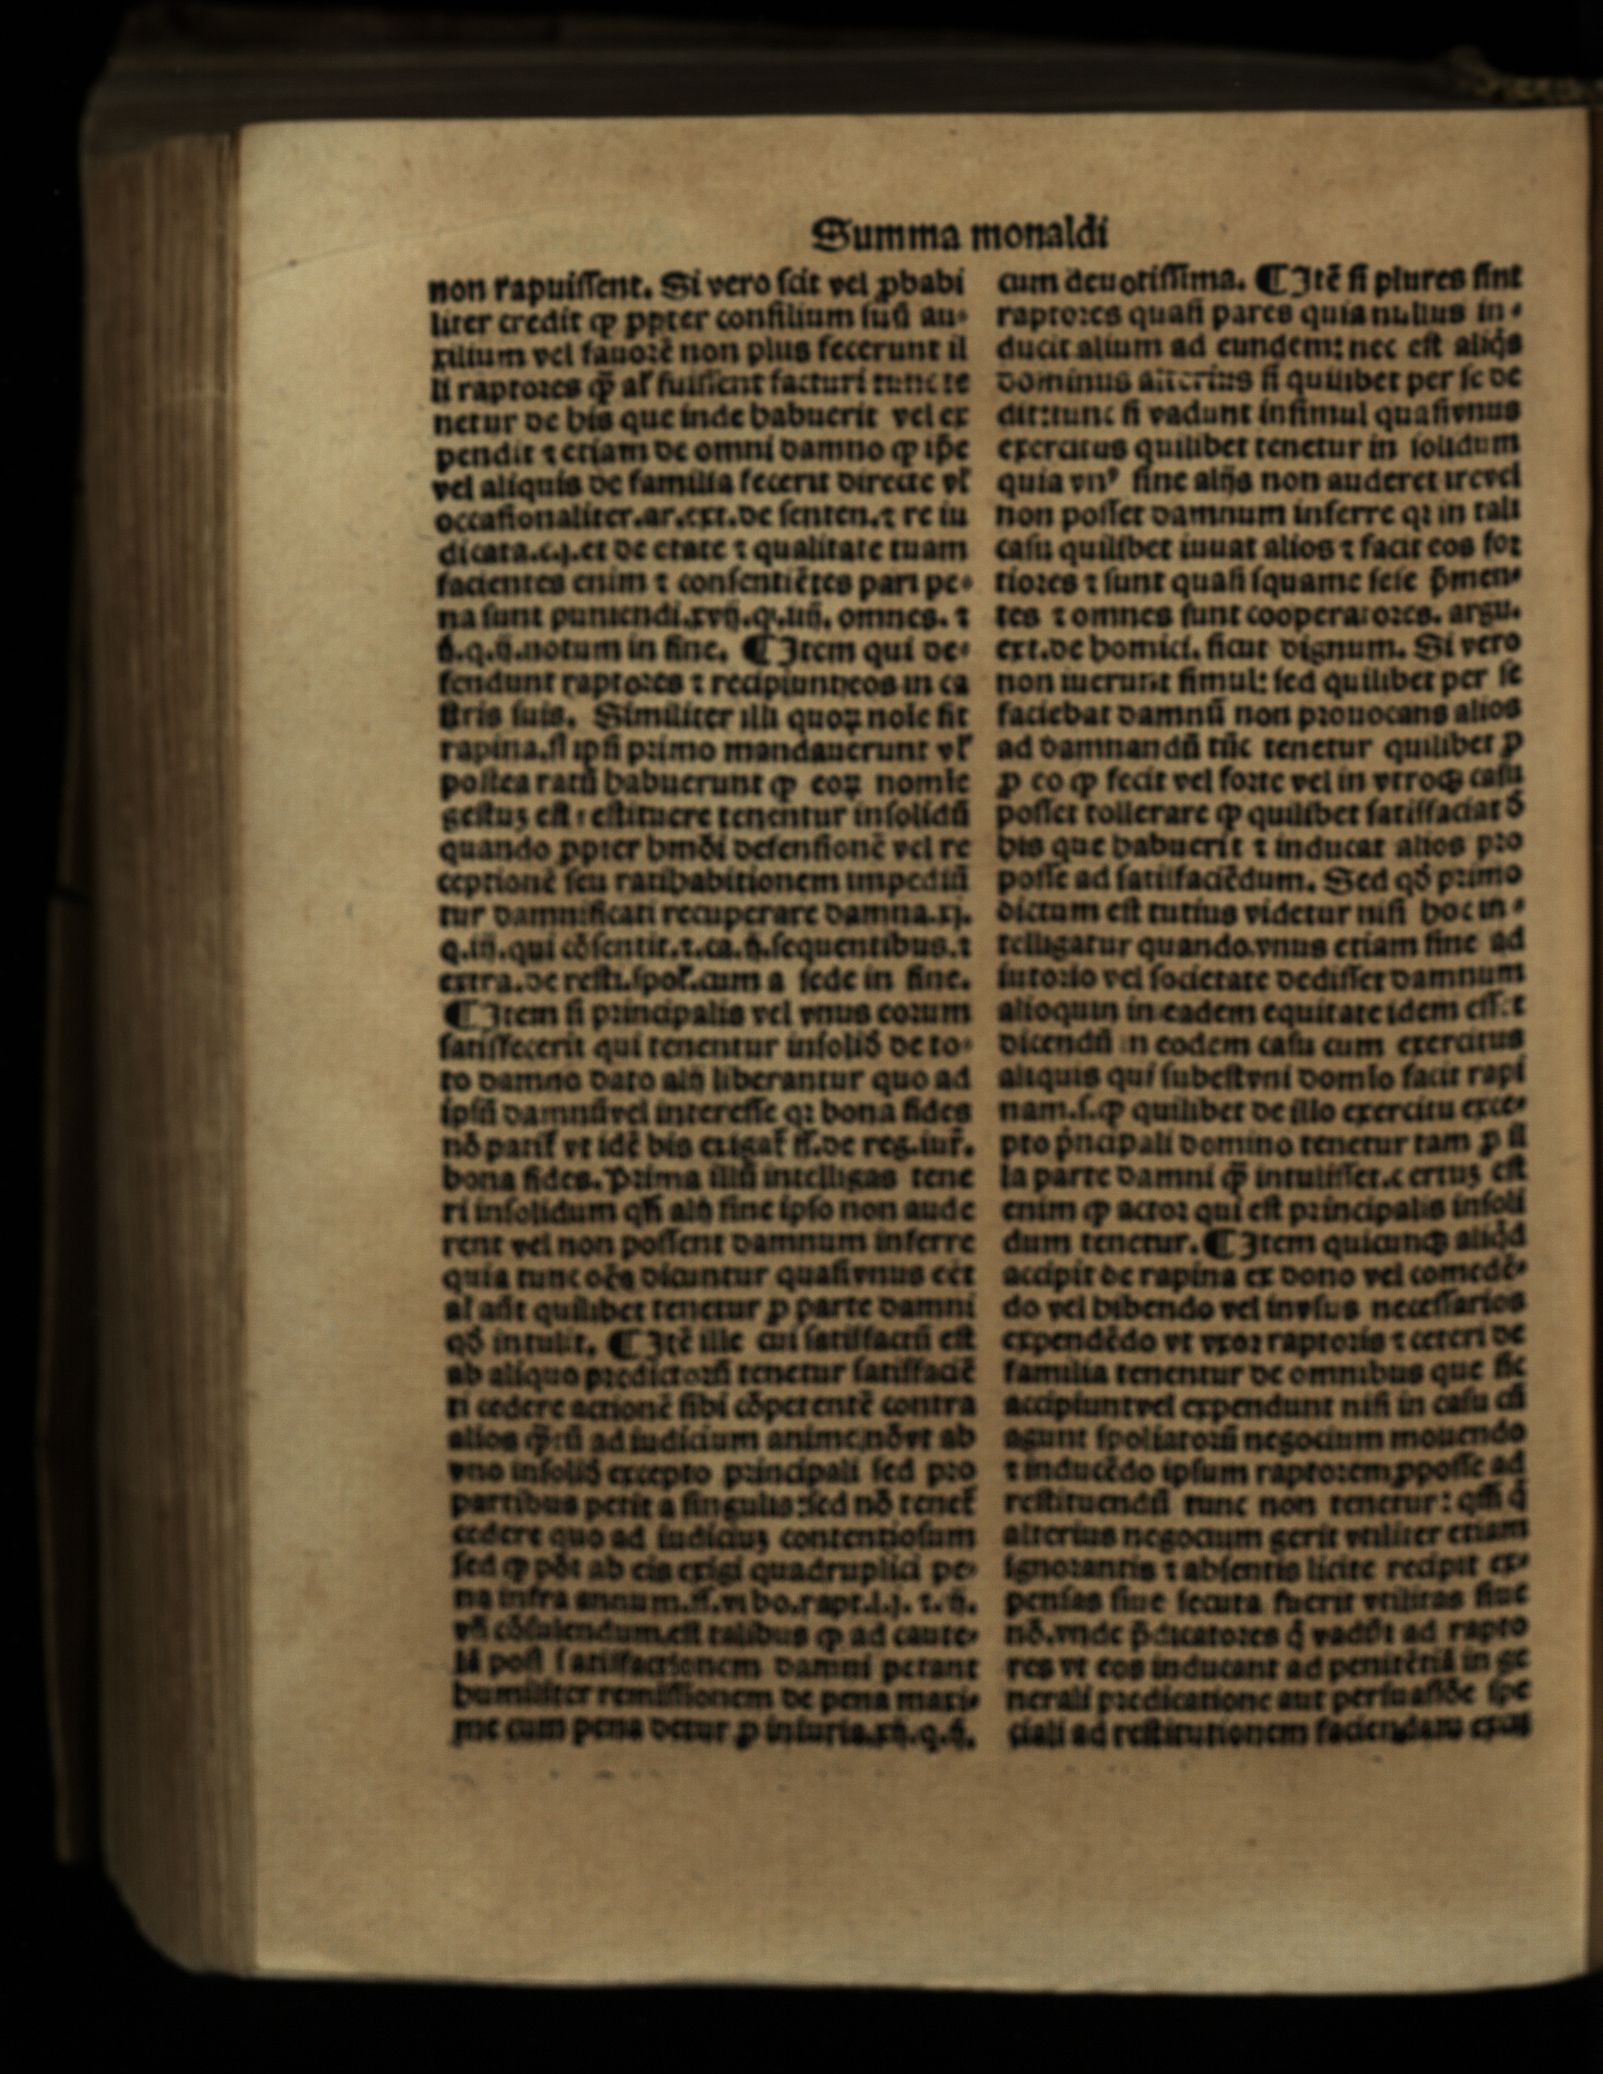 Summa monaldi
non rapuissent. Si vero scit vel ꝓbabi
liter credit ꝙ ꝓpter consilium suū au⸗
xilium vel fauorē non plus fecerunt il
li raptores ꝙ̄ al' fuissent facturi tunc te
netur de his que inde habuerit vel ex
pendit ⁊ etiam de omni damno ꝙ ip̄e
vel aliquis de familia fecerit directe vl'
occasionaliter.ar.ext.de senten.⁊ re iu
dicata.c.j.et de etate ⁊ qualitate tuam
facientes enim ⁊ consentiētes pari pe⸗
na sunt puniendi.xvij.q.iiij. omnes. ⁊
ij.q.ij.notum in fine. ¶ Item qui de⸗
fendunt raptores ⁊ recipiunt eos in ca
stris suis. Similiter illi quoꝝ noīe fit
rapina.si ipsi primo mandauerunt vl'
postea ratū habuerunt ꝙ eoꝝ nomīe
gestuꝫ est restituere tenentur insolidū
quando ꝓpter hmōi defensionē vel re
ceptionē seu ratihabitionem impediū
tur damnificati recuperare damna.xj.
q.iij.qui cōsentit.⁊.ca.ij.sequentibus.⁊
extra.de resti.spol'.cum a sede in fine.
¶ Item si principalis vel vnus eorum
satisfecerit qui tenentur insolid̄ de to⸗
to damno dato alij liberantur quo ad
ipsū damnū vel interesse qꝛ bona fides
nō patit' vt idē bis exigat' ff.de reg.iur̄.
bona fides. Prima illū intelligas tene
ri insolidum qn̄ alij sine ipso non aude
rent vel non possent damnum inferre
quia tunc oēs dicuntur quasi vnus eēt
al' aūt quilibet tenetur ꝓ parte damni
qd̄ intulit. ¶ Itē ille cui satisfactū est
ab aliquo predictorū tenetur satisfaciē
ti cedere actionē sibi cōpetentē contra
alios ꝙ̄tū ad iudicium anime,nō vt ab
vno insolid̄ excepto principali sed pro
partibus petit a singulis:sed nō tenet'
cedere quo ad iudiciuꝫ contentiosum
sed ꝙ pōt ab eis exigi quadruplici pe⸗
na infra annum.ff.vi bo.rapt.l.j. ⁊.ij.
vn̄ cōsulendum est talibus ꝙ ad caute⸗
lā post satisfactionem damni petant
humiliter remissionem de pena maxi⸗
me cum pena detur ꝓ iniuria.xij.q.ij.
cum deuotissima. ¶ Itē si plures sint
raptores quasi pares quia nullus in⸗
ducit alium ad eundem: nec est aliq̇s
dominus alterius si quilibet per se de
dit:tunc si vadunt insimul quasi vnus
exercitus quilibet tenetur in solidum
quia vnꝰ sine alijs non auderet ire vel
non posset damnum inferre qꝛ in tali
casu quilibet iuuat alios ⁊ facit eos for
tiores ⁊ sunt quasi squame sese p̄men⸗
tes ⁊ omnes sunt cooperatores. argu.
ext.de homici. sicut dignum. Si vero
non iuerunt simul: sed quilibet per se
faciebat damnū non prouocans alios
ad damnandū tūc tenetur quilibet ꝓ
ꝓ eo ꝙ fecit vel forte vel in vtroqꝫ casu
posset tollerare ꝙ quilibet satisfaciat d̄
his que habuerit ⁊ inducat alios pro
posse ad satisfaciēdum. Sed qd̄ primo
dictum est tutius videtur nisi hoc in⸗
telligatur quando.vnus etiam sine ad
iutorio vel societate dedisset damnum
alioquin in eadem equitate idem esset
dicendū in eodem casu cum exercitus
aliquis qui subest vni domīo facit rapi
nam.s.ꝙ quilibet de illo exercitu exce⸗
pto pṅcipali domino tenetur tam ꝓ il
la parte damni ꝙ̄ intulisset.certuꝫ est
enim ꝙ actor qui est principalis insoli
dum tenetur. ¶ Item quicunqꝫ aliq̇d
accipit de rapina ex dono vel comedē⸗
do vel bibendo vel in vsus necessarios
expendēdo vt vxor raptoris ⁊ ceteri de
familia tenentur de omnibus que sic
accipiunt vel expendunt nisi in casu cū
agunt spoliatorū negocium mouendo
⁊ inducēdo ipsum raptorem ꝓposse ad
restituendū tunc non tenetur: qm̄ q̇
alterius negocium gerit vtiliter etiam
ignorantis ⁊ absentis licite recipit ex⸗
pensas siue secuta fuerit vtilitas siue
nō.vnde p̄dicatores q̇ vadūt ad rapto
res vt eos inducant ad penitētiā in ge
nerali predicatione aut persuasiōe spe
ciali ad restitutionem faciendam